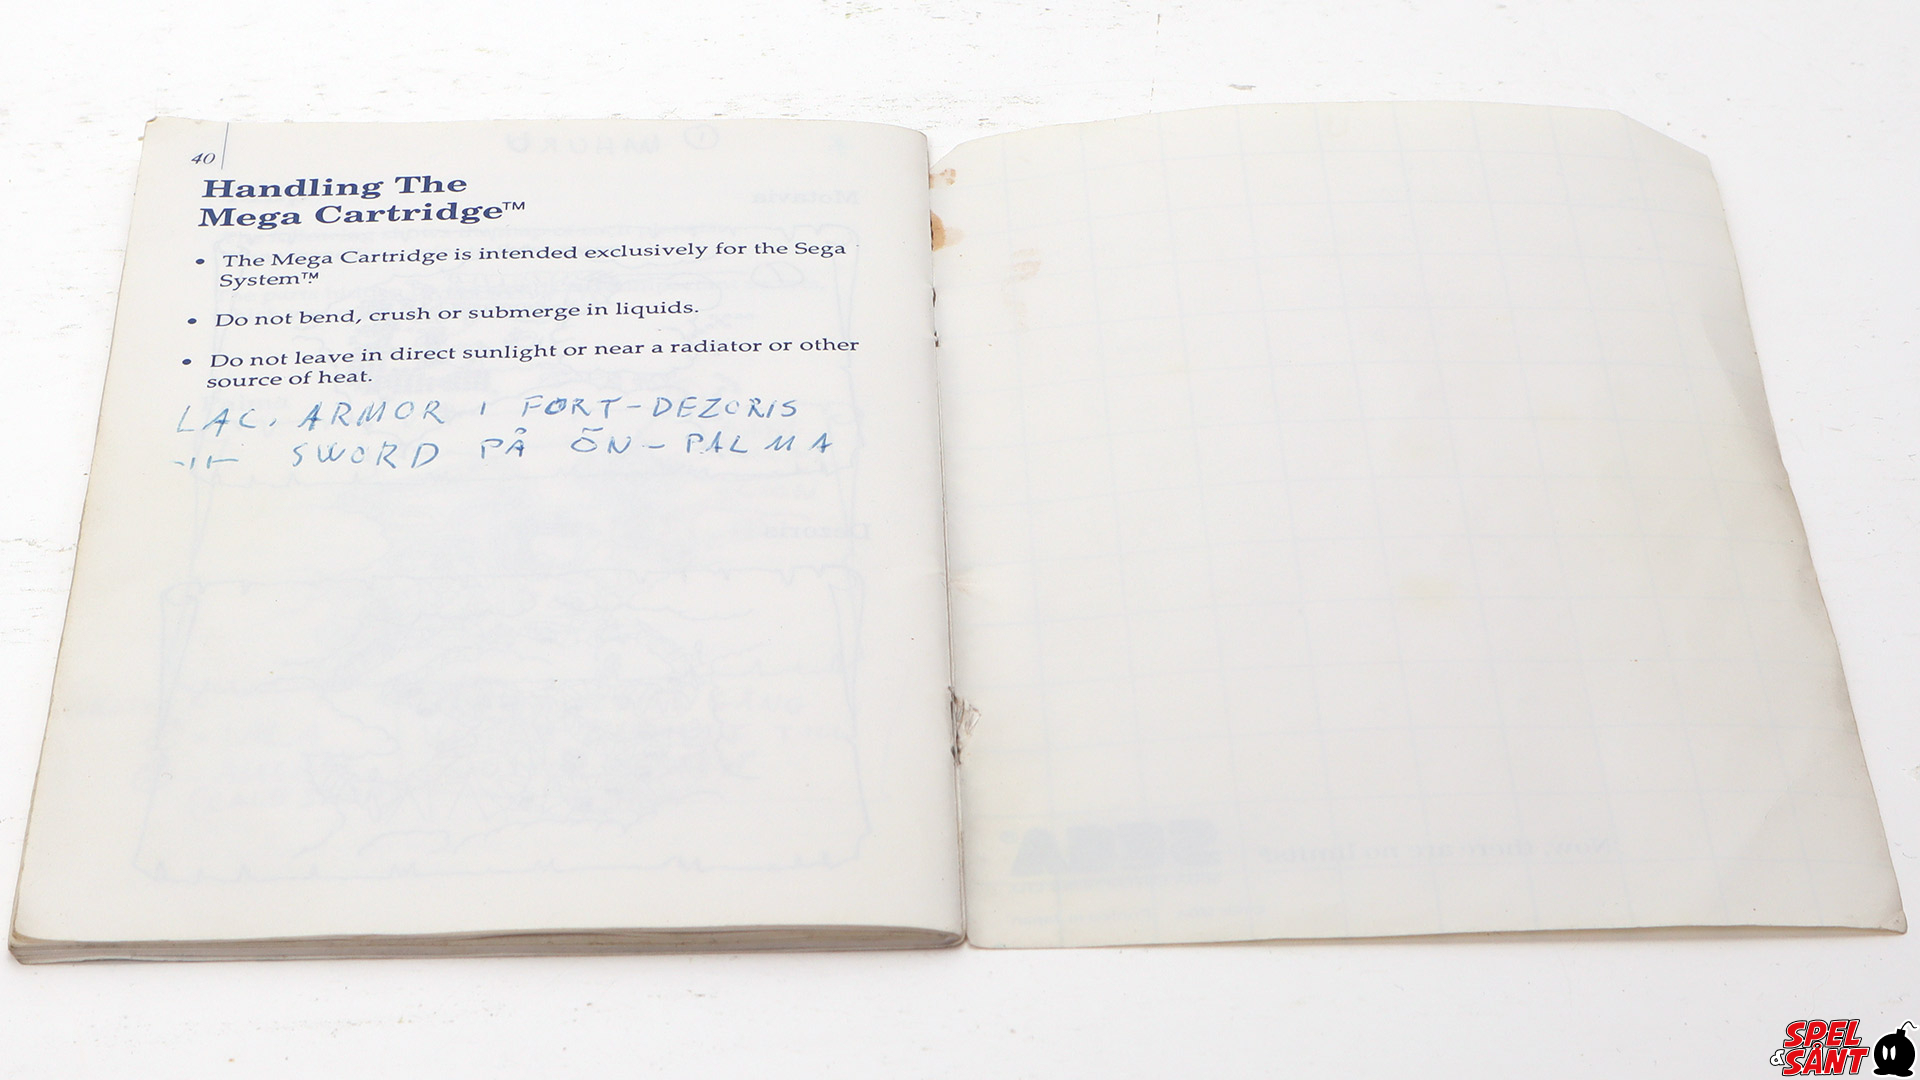 40
Handling The
Mega Cartridge™
• The Mega Cartridge is intended exclusively for the Sega
System™.
• Do not bend, crush or submerge in liquids.
• Do not leave in direct sunlight or near a radiator or other
source of heat.
LAC. ARMOR I FORT-DEZORIS
-11- SWORD PÅ ÖN-PALMA
SPEL
&SÅNT